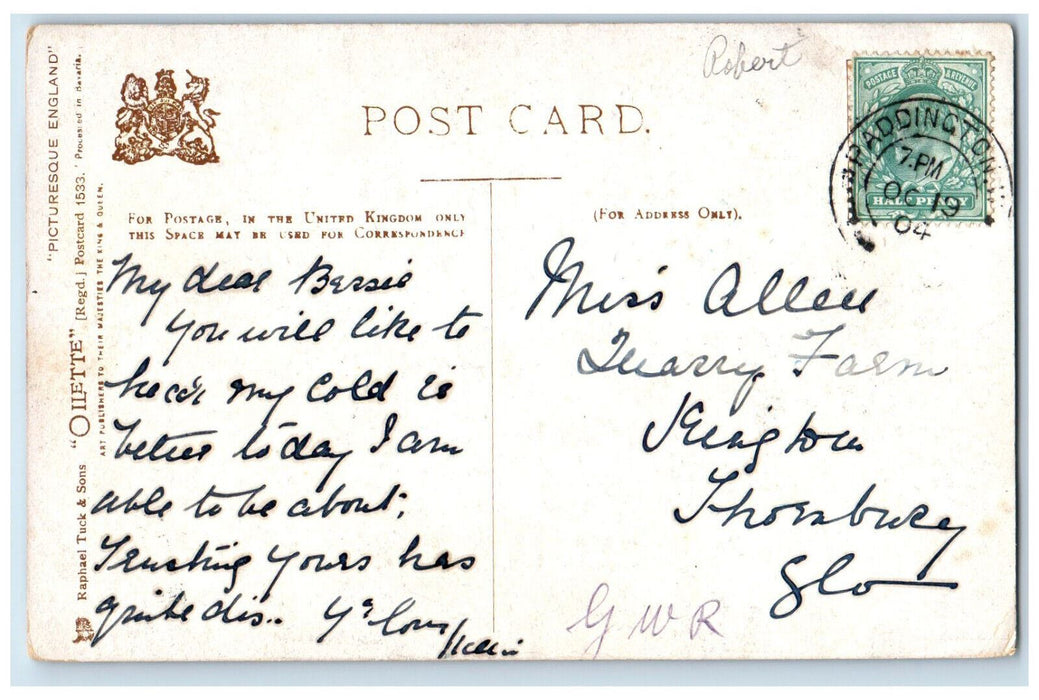 Robert
POST CARD.
POSTAGE & REVENUE
HALFPENNY
PADDINGTON
7. PM
OC 19
04
"PICTURESQUE ENGLAND"
Raphael Tuck & Sons "OILETTE" [Regd.] Postcard 1533. Processed in Bavaria.
ART PUBLISHERS TO THEIR MAJESTIES THE KING & QUEEN.
FOR POSTAGE, IN THE UNITED KINGDOM ONLY
THIS SPACE MAY BE USED FOR CORRESPONDENCE
(FOR ADDRESS ONLY).
My dear Bessie
You will like to
hear my Cold is
better today I am
able to be about,
Trusting Yours has
quite dis..
Miss Allen
Quarry Farm
Kington
Thornbury
Glo
G W R